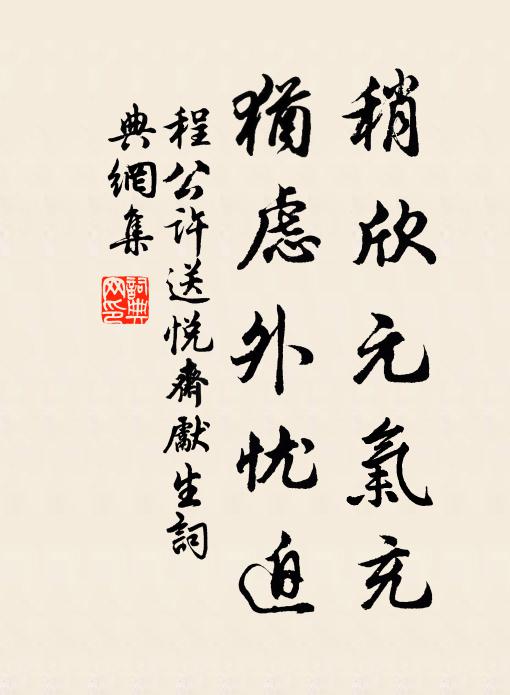 稍欣元氣充
猶慮外忧迫
程公许送悦齋獻生詞
典網集
詞典
网印